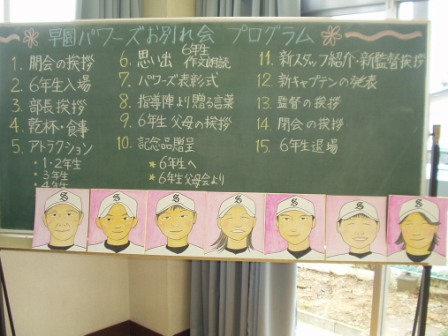 早園パワーズお別れ会 プログラム
1. 開会の挨拶
2. 6年生入場
3. 部長挨拶
4. 乾杯・食事
5. アトラクション
・1・2年生
・3年生
・4年生
6. 思い出 6年生作文朗読
7. パワーズ表彰式
8. 指導陣より贈る言葉
9. 6年生父母の挨拶
10. 記念品贈呈
★6年生へ
★6年生父母会より
11. 新スタッフ紹介・新監督挨拶
12. 新キャプテンの発表
13. 監督の挨拶
14. 閉会の挨拶
15. 6年生退場
S
S
S
S
S
S
S